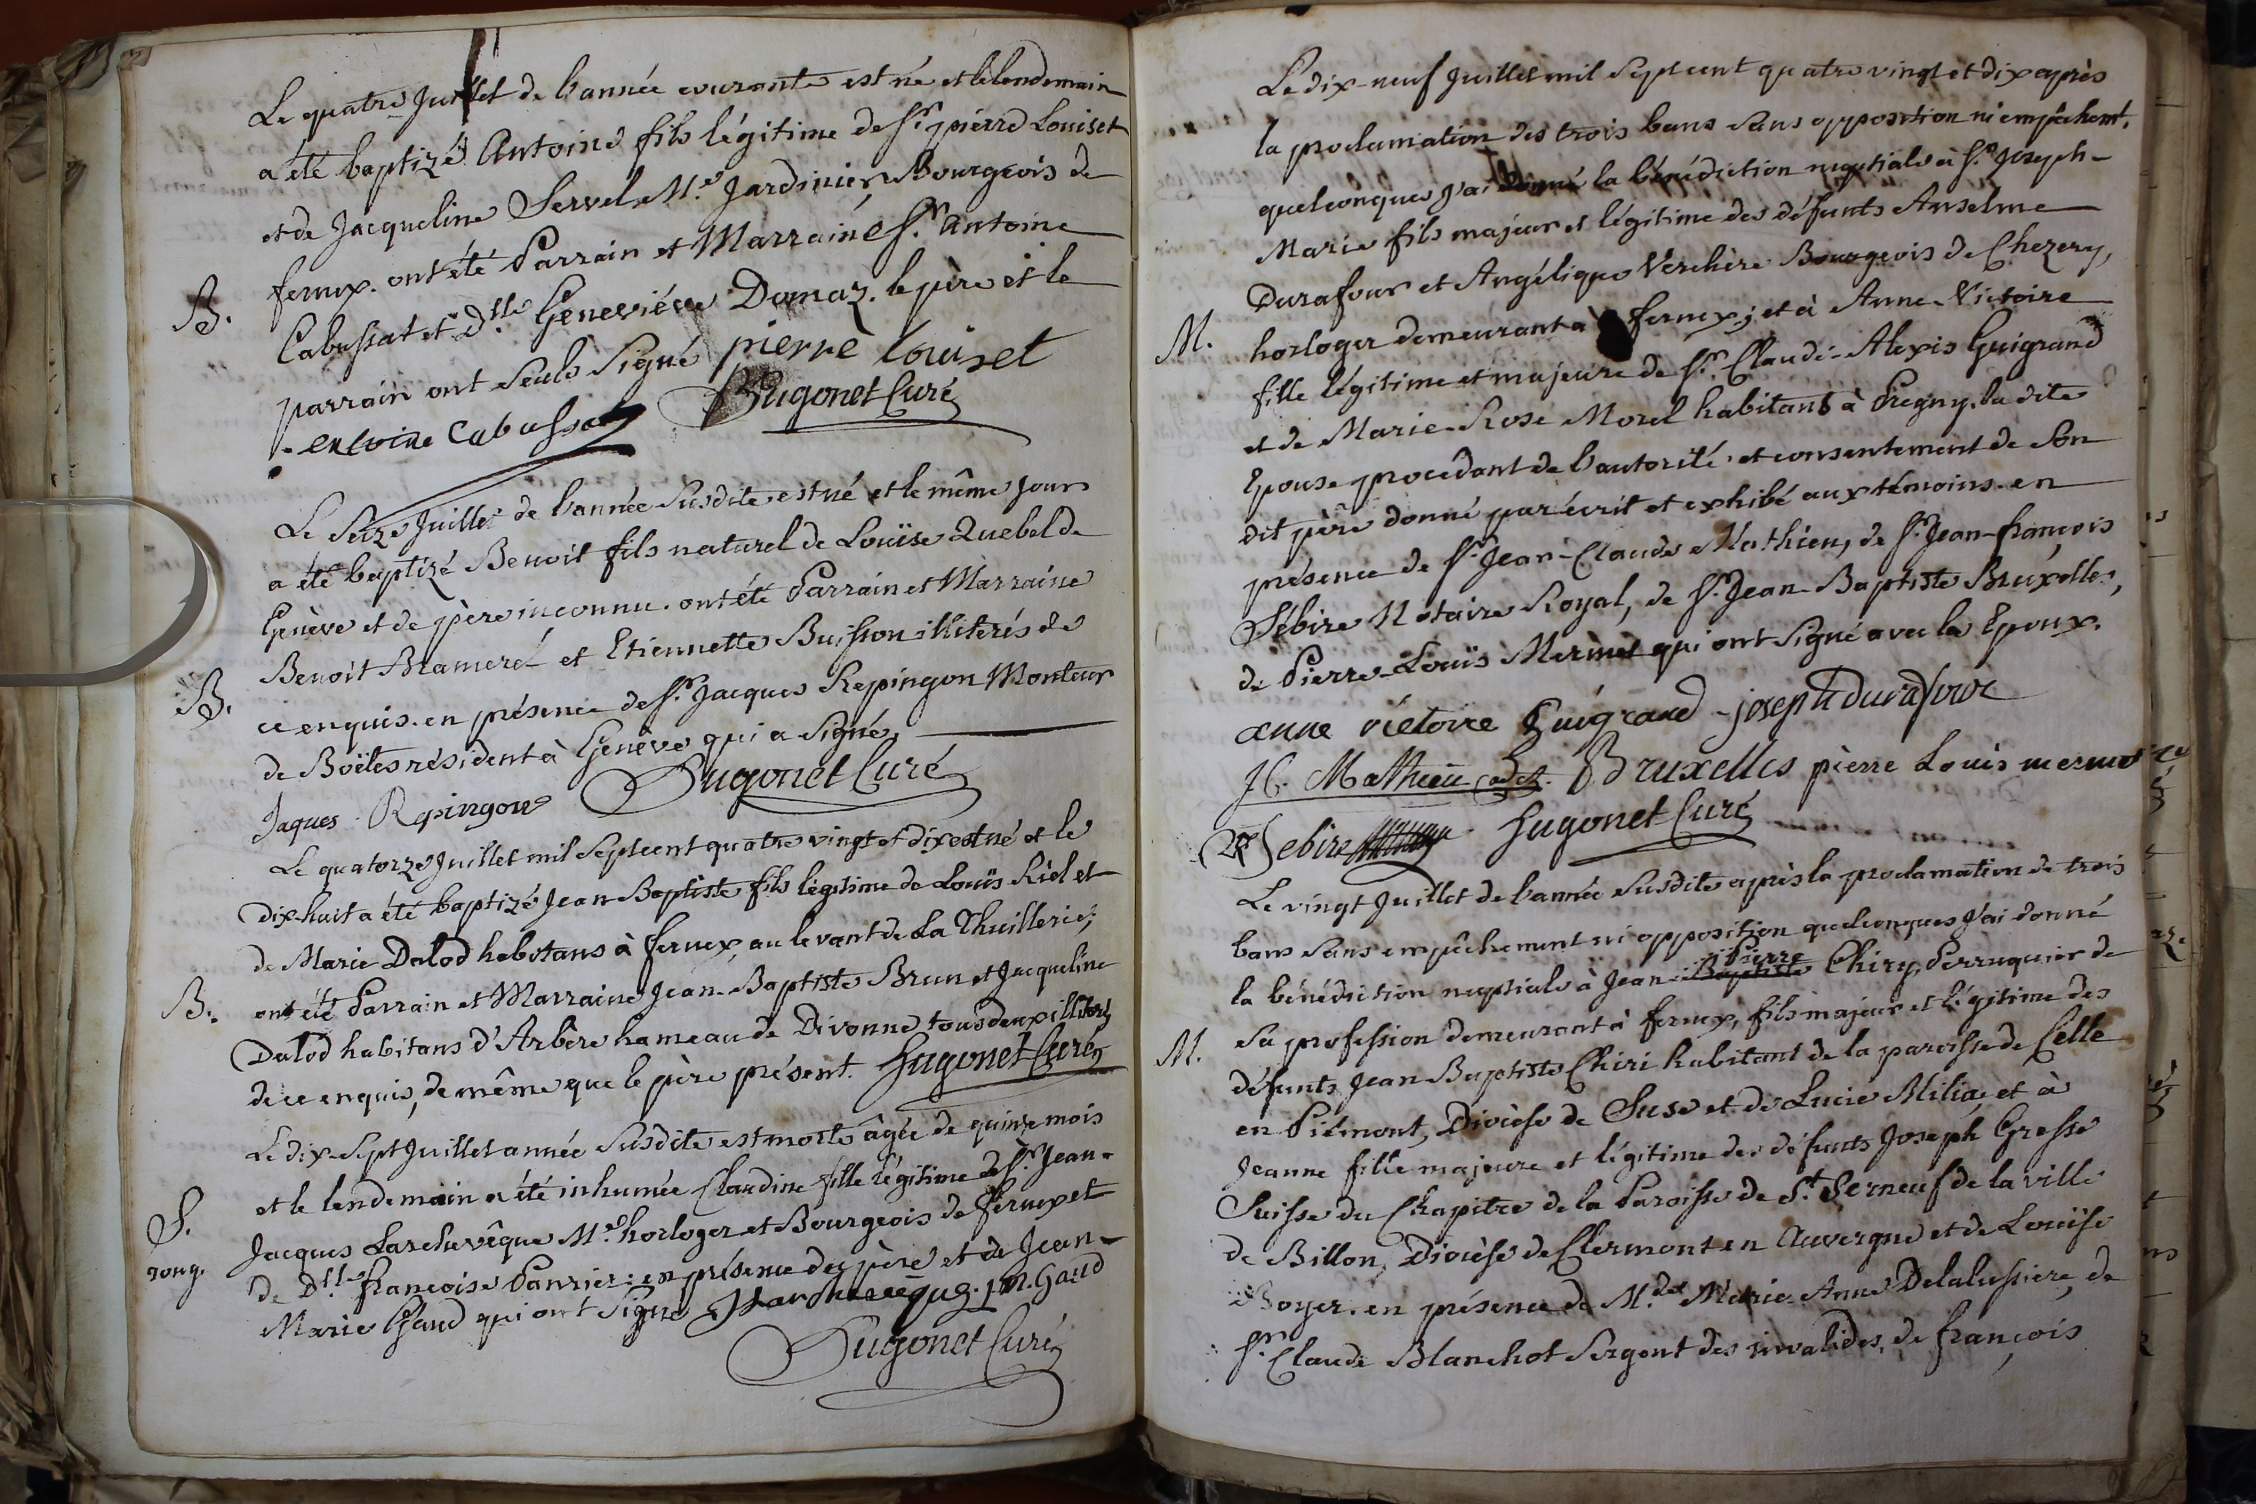 Le quatre Juillet de l'année courante est né et le lendemain
a été baptizé Antoine fils légitime de Sr. pierre Louiset
et de Jacqueline Servel Me. Jardinier, Bourgeois de
fernex. ont été Parrain et Marraine Sr. Antoine
B.
Cabussat et Dlle Geneviéve Dumaz. le père et le
parrain ont seuls Signé pierre Louiset
entoine Cabussat Hugonet Curé
Le Seize Juillet de l'année Susdite est né et le même jour
a été baptizé Benoit fils naturel de Louïse Quebel de
Genève et de père inconnu. ont été Parrain et Marraine
Benoit Brameré et Etiennette Buisson illiterés de
B.
ce enquis. en présence de Sr. Jacques Repingon Monteur
de Boëtes résident à Genève qui a Signé.
Jaques Repingon Hugonet Curé
Le quatorze Juillet mil Septcent quatre vingt et dix est né et le
dix-huit a été baptizé Jean-Baptiste fils légitime de Louïs Riel et
de Marie Dalod habitans à fernex, au levant de La Thuillerie;
B.
ont été Parrain et Marraine Jean-Baptiste Brun et Jacqueline
Dalod habitans d'Arbère hameau de Divonne tous deux illiterés
de ce enquis, de même que le père présent. Hugonet Curé
Le dix-Sept Juillet année Susdite est morte âgée de quinze mois
et le lendemain a été inhumée Claudine fille légitime de Sr. Jean-
S.
Jacques Larchevêque Me. horloger et Bourgeois de fernex et
de Dlle françoise Panrier: en présence des père et de Jean-
Marie Gaud qui ont Signé Larcheveque. J M. Gaud
Hugonet Curé
Le dix-neuf Juillet mil Septcent quatre vingt et dix après
la proclamation des trois bans Sans opposition ni empêchemt.
quelconques j'ai donné la bénédiction nuptiale à Sr. Joseph-
Marie fils majeur et légitime des défunts Anselme
Durafour et Angélique Verchère Bourgeois de Chezery,
M.
horloger demeurant à fernex; et à Anne-Victoire
fille légitime et majeure de Sr. Claude-Alexis Guigrand
et de Marie-Rose Morel habitans à Pregny. la dite
Epouse procédant de l'autorité et consentement de Son
dit père donné par écrit et exhibé aux témoins. en
présence de Sr. Jean-Claude Mathieu, de Sr. Jean-françois
Sébire Notaire Royal, de Sr. Jean-Baptiste Bruxelles,
de Pierre-Louïs Mermet qui ont Signé avec les Epoux.
anne victoire Guigrand joseph durafour
J C. Mathieu cadet. Bruxelles pierre Louis mermet
Sebire Hugonet Curé
Le vingt Juillet de l'année Susdite après la proclamation de trois
bans Sans empêchement ni opposition quelconques j'ai donné
la bénédiction nuptiale à Jean-Baptiste Pierre Chiry, Perruquier de
Sa profession demeurant à fernex, fils majeur et légitime des
M.
défunts Jean Baptiste Chiri habitant de la paroisse de Celle
en Piémont, Diocèse de Suse et de Lucie Milia; et à
Jeanne fille majeure et légitime des défunts Joseph Grosse
Suisse du Chapitre de la Paroisse de St. Serneuf de la ville
de Billon, Diocèse de Clermont en Auvergne et de Louïse
Boyer. en présence de Mde. Marie-Anne Delalussiere, de
Sr. Claude Blanchot Sergent des invalides, de françois